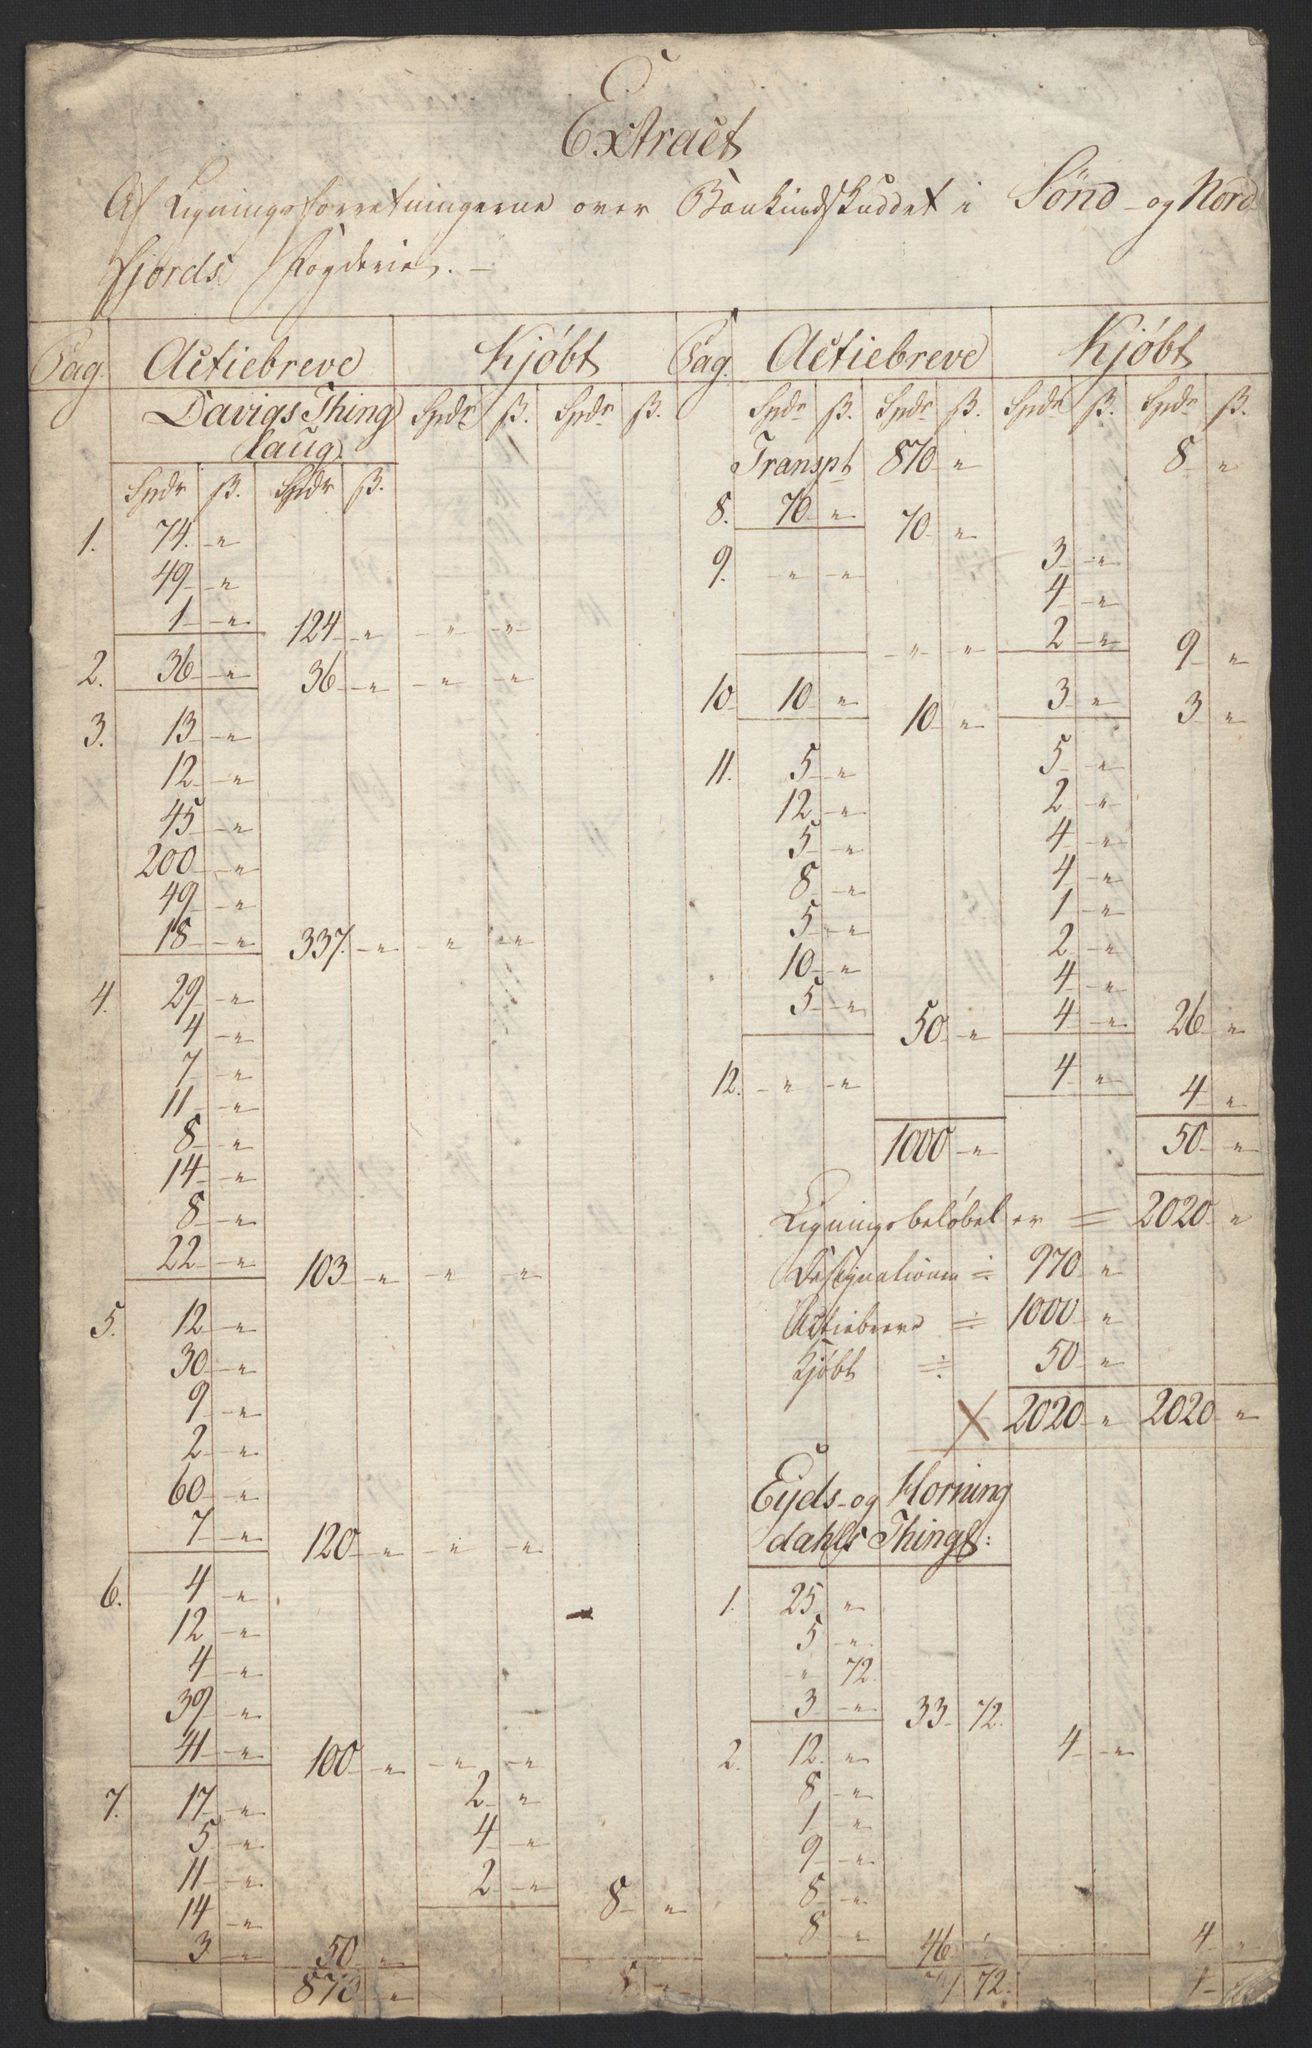 Extract
Af Ligningsforretningerne over Bankindskuddet i Sønd- og Nord-
fjords Fogderie. –
Pag. Actiebreve Kjøbt
Davigs Thing Spdr ß. Spdr ß.
laug.
Spdr ß. Spdr ß.
1. 74 - "
49 - "
1 - " 124 - " - " - "
2. 36 - " 36 - " - " - "
3. 13 - "
12 - "
45 - "
200 - "
49 - "
18 - " 337 - " - " - "
4. 29 - "
4 - "
7 - "
11 - "
8 - "
14 - "
8 - "
22 - " 103 - " - " - "
5. 12 - "
30 - "
9 - "
2 - "
60 - "
7 - " 120 - " - " - "
6. 4 - "
12 - "
4 - "
39 - "
41 - " 100 - " - " - "
7. 17 - " 2 - "
5 - " 4 - "
11 - " 2 - "
14 - " 8 - "
3 - " 50 - "
870 - "
Pag. Actiebreve Kjøbt
Spdr ß. Spdr ß. Spdr ß. Spdr ß.
Transpt 870 - " 8 - "
8. 70 - " 70 - "
9. - " - " 3 - "
4 - "
- " - " 2 - " 9 - "
10. 10 - " 10 - " 3 - " 3 - "
11. 5 - " 5 - "
12 - " 2 - "
5 - " 4 - "
8 - " 4 - "
5 - " 1 - "
10 - " 2 - "
5 - " 4 - "
50 - " 4 - " 26 - "
12. - " - " 4 - " 4 - "
1000 - " 50 - "
Ligningsbeløbet er = 2020 - "
Designationen ÷ 970 - "
Actiebreve ÷ 1000 - "
Kjøbt ÷ 50 - "
X 2020 - " 2020 - "
Eyds- og Horning
dahls Thingl:
1. 25 - "
5 - "
" 72.
3 - " 33 - 72.
2. 12 - " 4 - "
8 - "
1 - "
9 - "
8 - "
8 - " 46 4 - "
72.